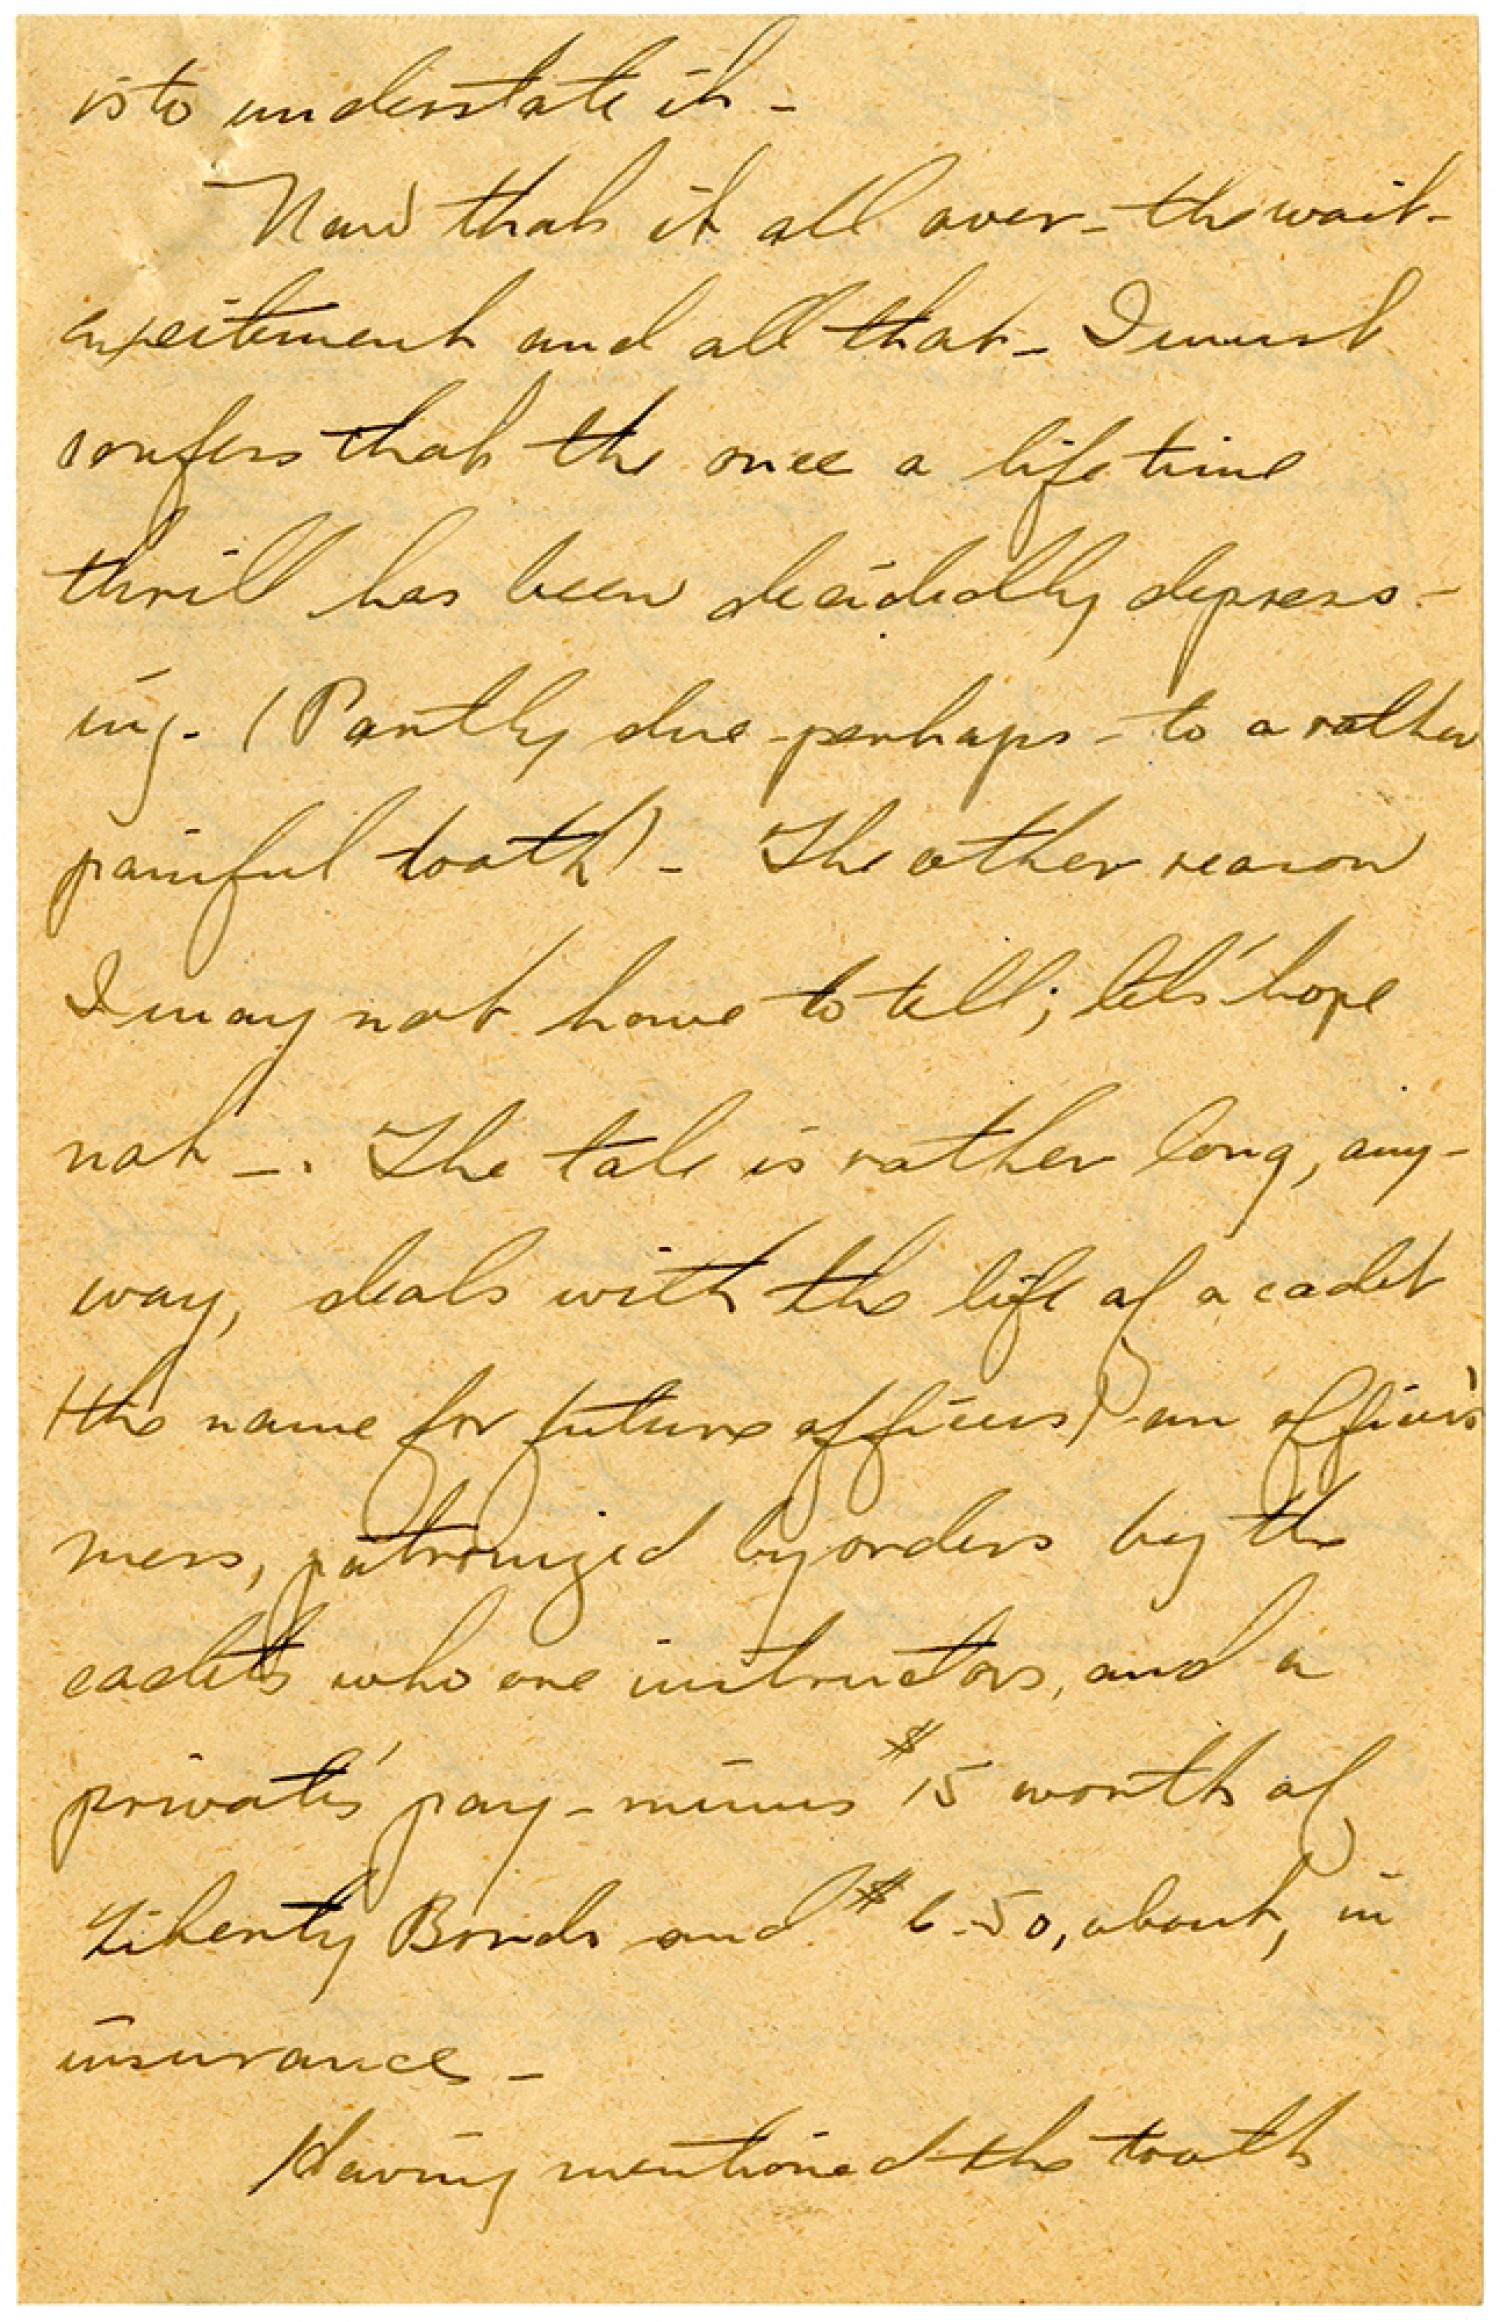 is to understate it -
Now that it all over - the wait -
excitement and all that - I must
confess that the once a life time
thrill has been decidedly depress-
ing. (Partly due - perhaps - to a rather
painful tooth) - The other reason
I may not have to tell; let's hope
not -. The tale is rather long, any-
way, deals with the life of a cadet
(the name for future officers) - an officer's
mess, patronized by orders by the
cadets who are instructors, and a
private's pay - minus $15 worth of
Liberty Bonds and $6.50, about, in
insurance -
Having mentioned the tooth